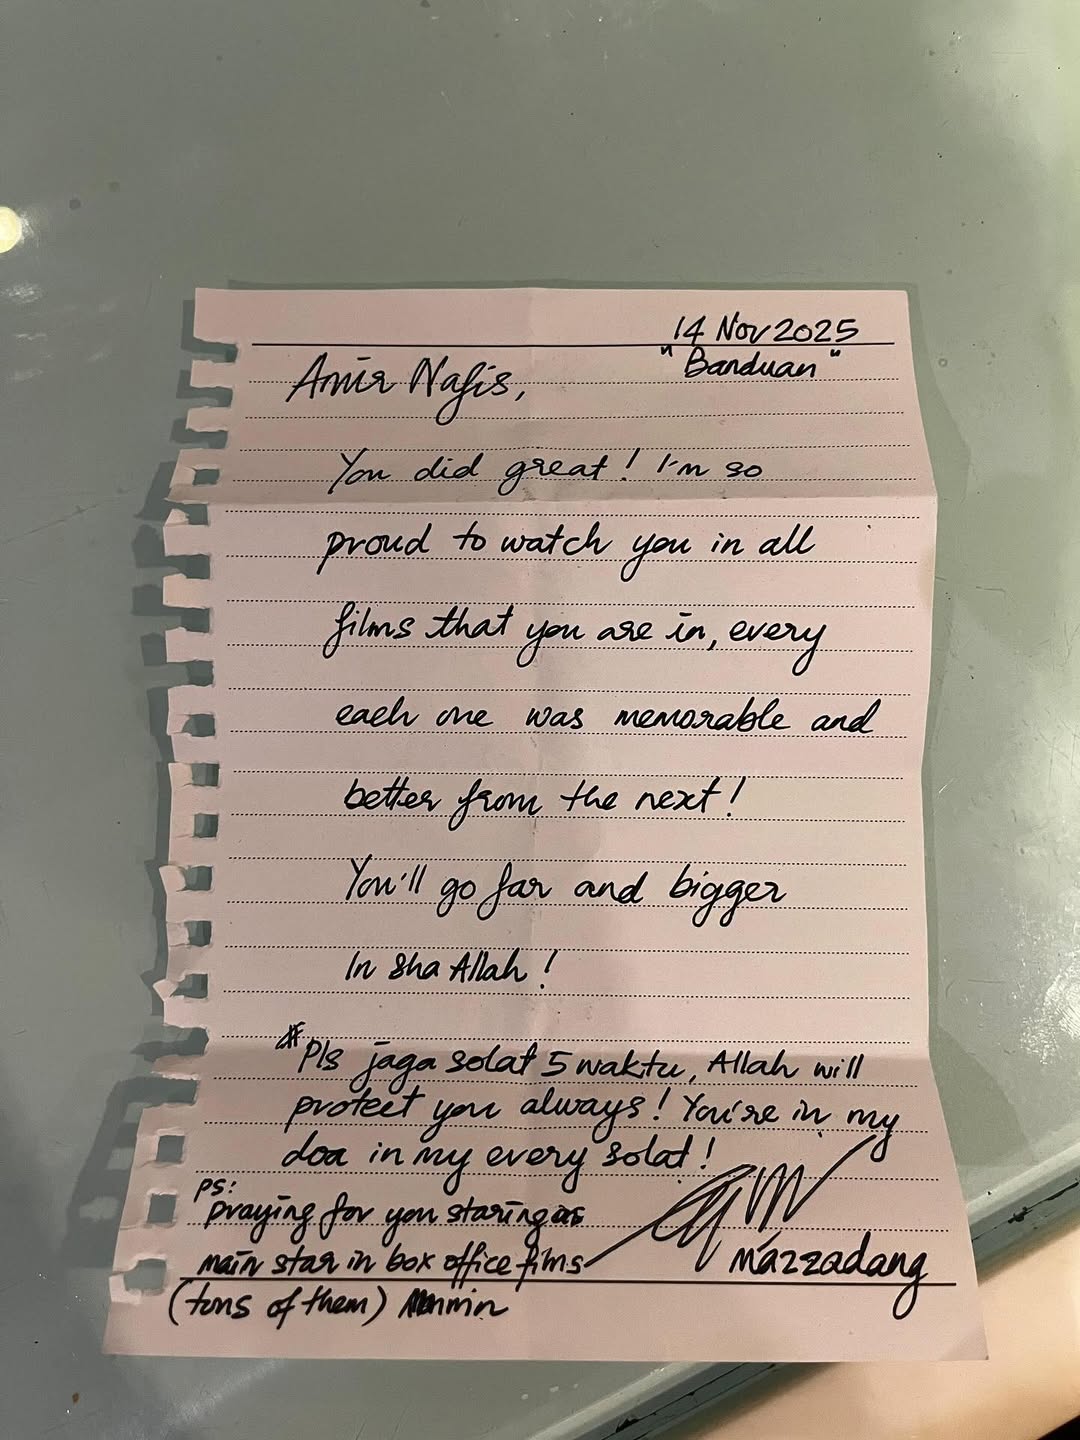 14 Nov 2025
"Banduan"
Amir Nafis,
You did great! I'm so
proud to watch you in all
films that you are in, every
each one was memorable and
better from the next!
You'll go far and bigger
In sha Allah!
*Pls jaga solat 5 waktu, Allah will
protect you always! You're in my
doa in my every solat!
ps:
praying for you staring as
main star in box office films
mazzadang
(tons of them)